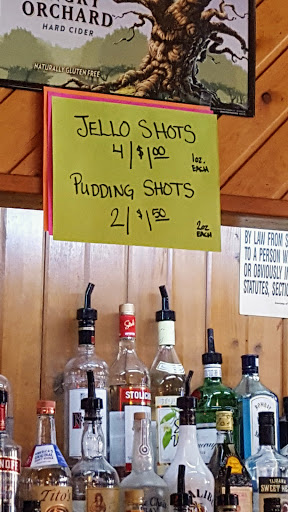 ORCHARD
HARD CIDER
NATURALLY GLUTEN FREE
JELLO SHOTS
4/$1.00 1oz. EACH
PUDDING SHOTS
2/$1.50 2oz EACH
BY LAW FROM S
TO A PERSON W
OR OBVIOUSLY I
STATUTES, SECTI
STOLICH
BOMBAY
Tito's
SWEET